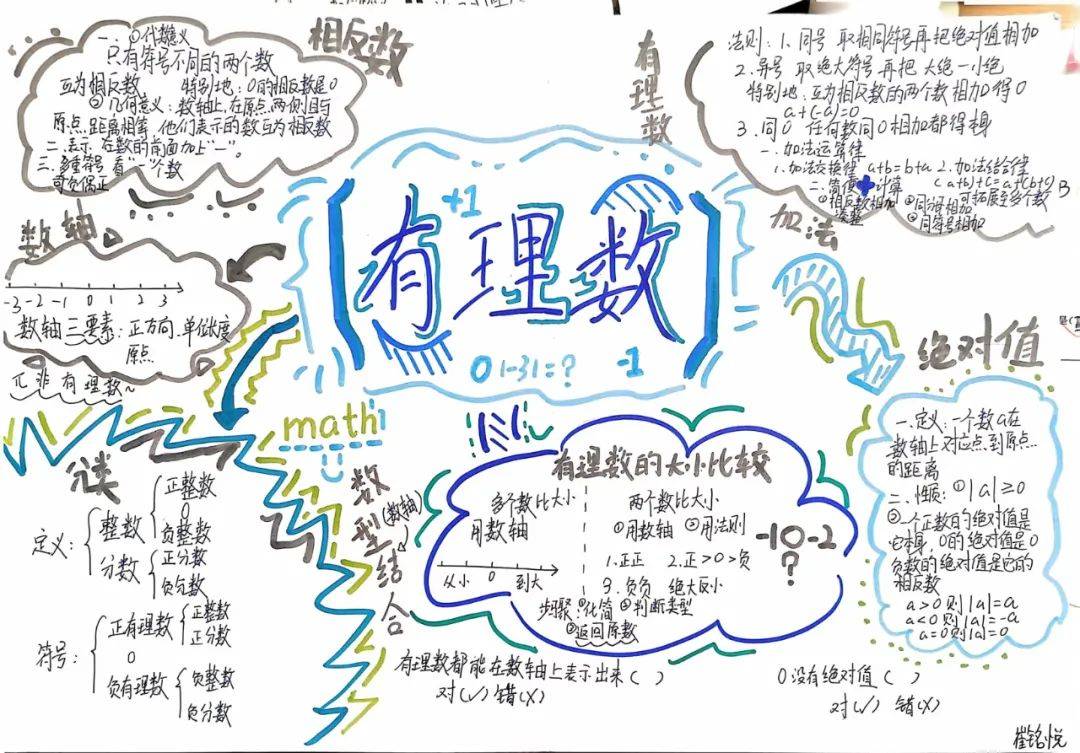 相反数
一、①代数意义
只有符号不同的两个数
互为相反数 特别地：0的相反数是0
②几何意义：数轴上，在原点两侧且与
原点距离相等，他们表示的数互为相反数
二、表示：在数的前面加上"—"。
三、多重符号 看"—"个数
奇负偶正
有理数
法则：1、同号 取相同符号再把绝对值相加
2、异号 取绝大符号再把 大绝一小绝
特别地：互为相反数的两个数相加得0
a+(-a)=0
3、同0 任何数同0相加都得本身
一、加法运算律
1、加法交换律 a+b=b+a 2、加法结合律
(a+b)+c=a+(b+c)
二、简便计算 可拓展至多个数
①相反数相加 ②同分母相加
凑整 ④同符号相加
加法
数轴
-3 -2 -1 0 1 2 3
数轴三要素：正方向、单位长度
原点
π非有理数~
+1
有理数
0 |-3|=? -1
绝对值
一、定义：一个数a在
数轴上对应点到原点
的距离
二、性质：①|a|≥0
②一个正数的绝对值是
它本身，0的绝对值是0
负数的绝对值是它的
相反数
a>0则|a|=a
a<0则|a|=-a
a=0则|a|=0
math
数型结合
(数轴)
分类
定义：整数 正整数
0
负整数
分数 正分数
负分数
符号：正有理数 正整数
正分数
0
负有理数 负整数
负分数
有理数的大小比较
多个数比大小
用数轴
从小 0 到大
两个数比大小
①用数轴 ②用法则
1、正正 2、正>0>负
3、负负 绝大反小
步聚：①化简 ②判断类型
③返回原数
-1 0 -2
?
有理数都能在数轴上表示出来( )
对(√) 错(X)
0没有绝对值( )
对(√) 错(X)
崔铭悦